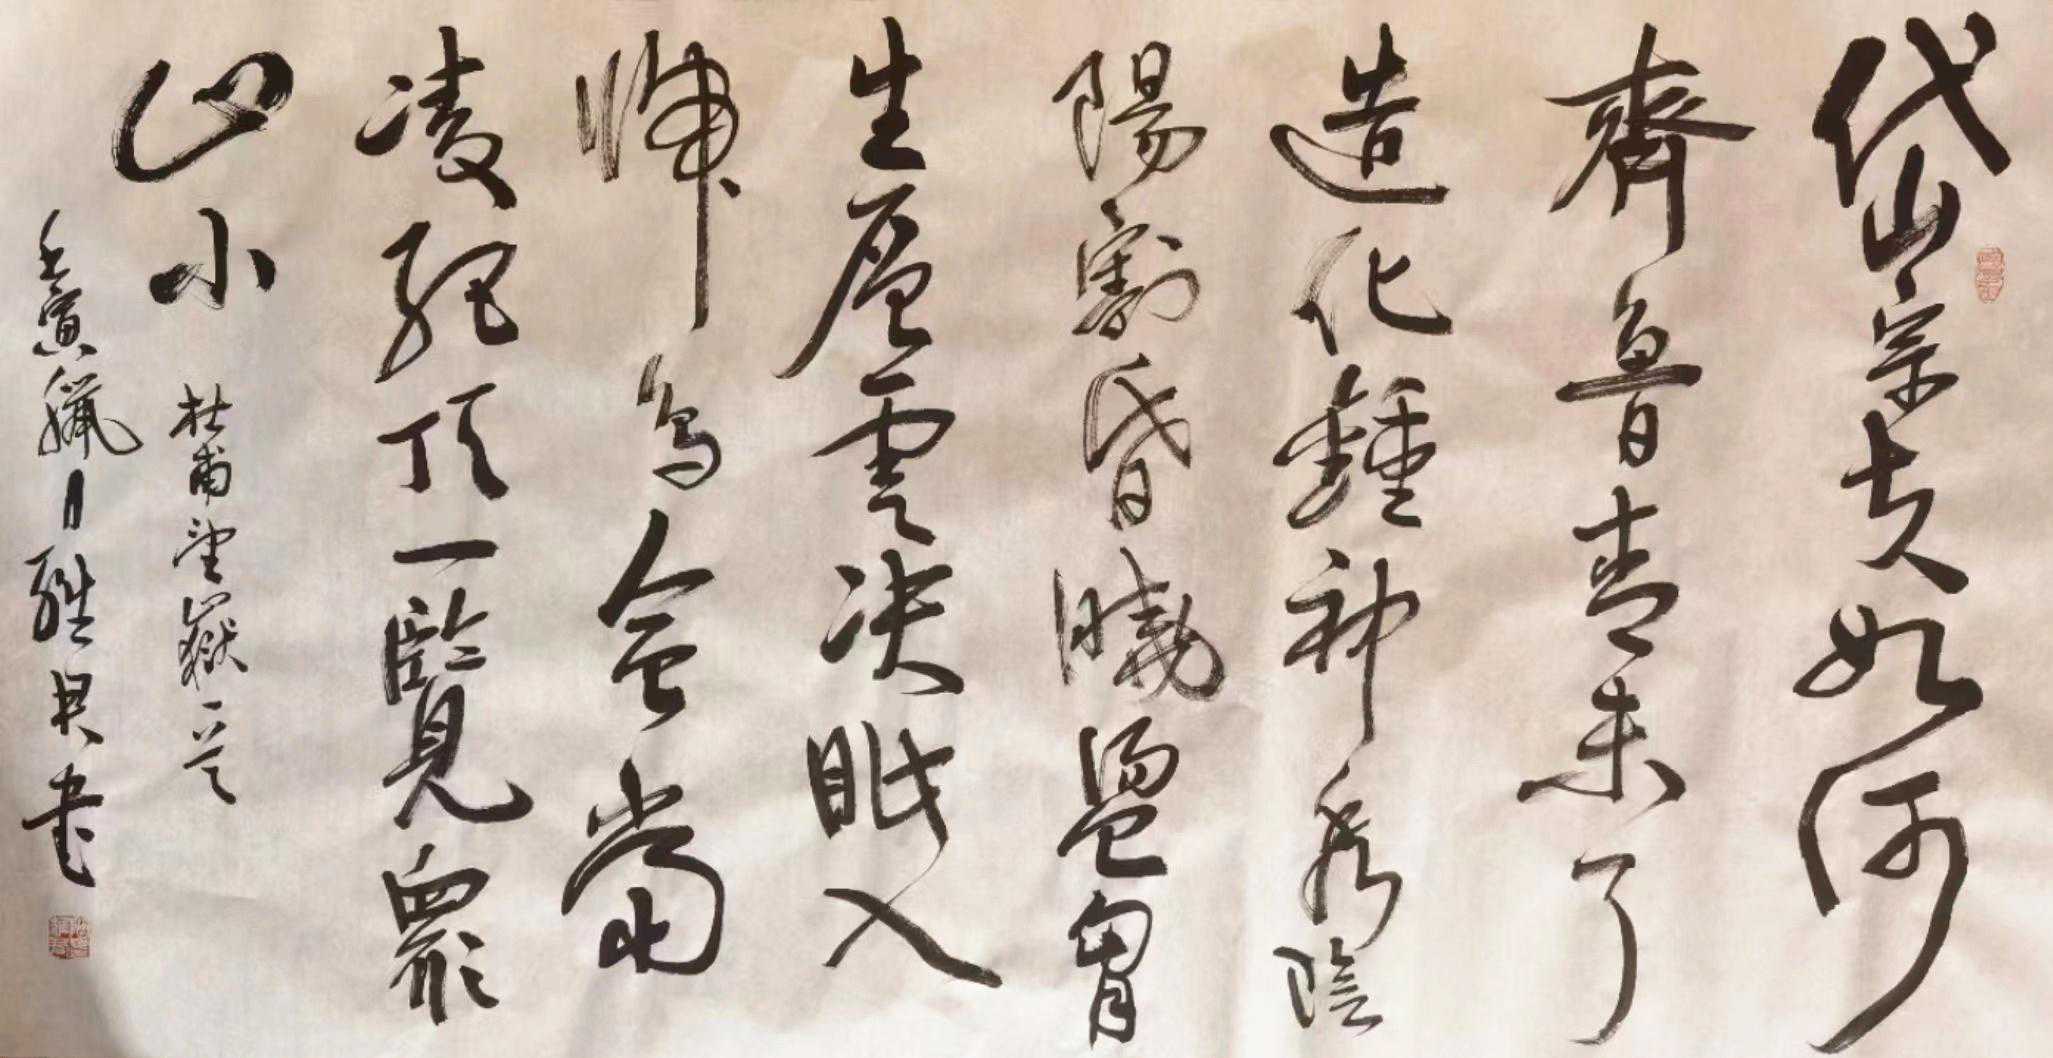 岱宗夫如何
齊魯青未了
造化鍾神秀陰
陽割昏曉盪胷
生層雲决眦入
歸鳥會當
凌絕頂一覽衆
山小
杜甫望嶽一首
壬寅臘日書